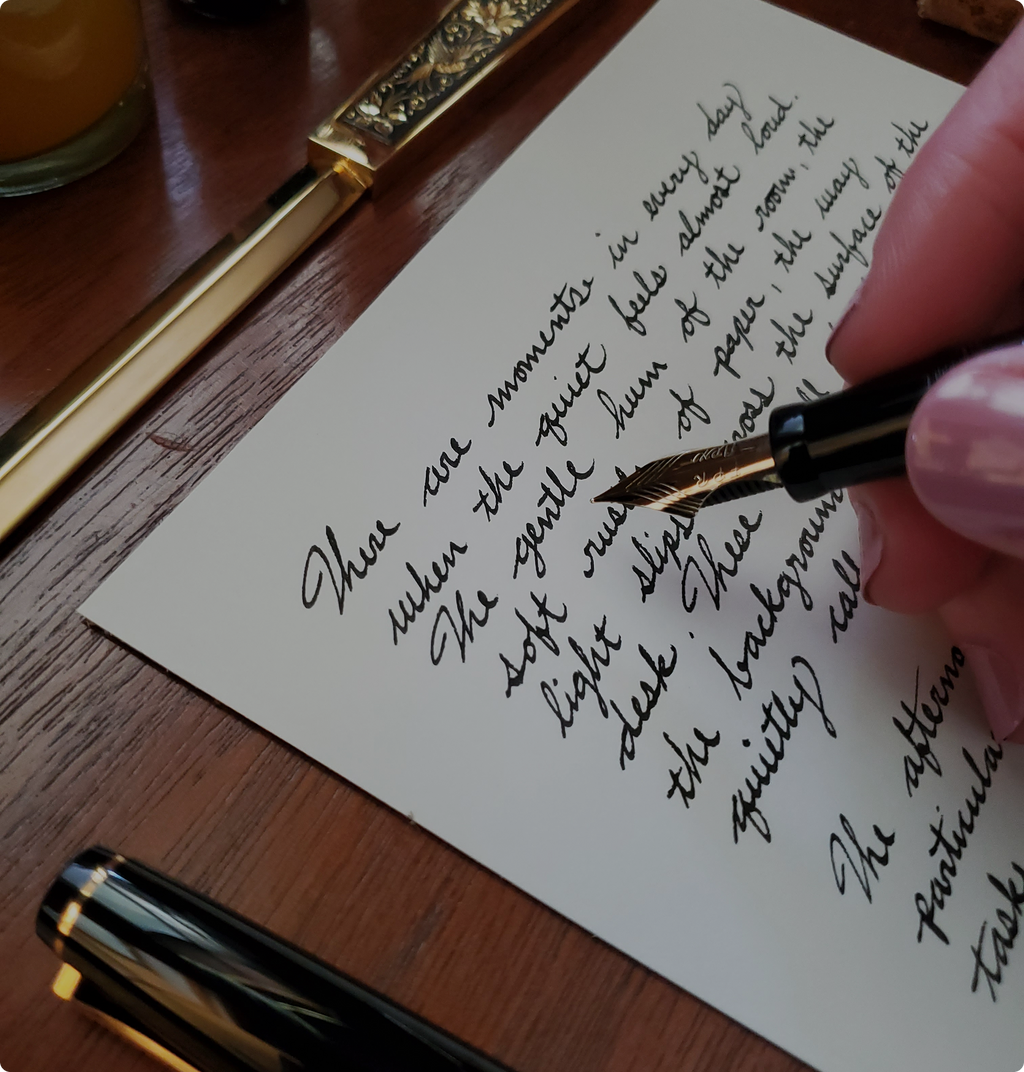 There are moments in every day
when the quiet feels almost loud.
The gentle hum of the room, the
soft of paper, the way
light slips the surface of the
desk. These
the background
quietly call
The
particular
task